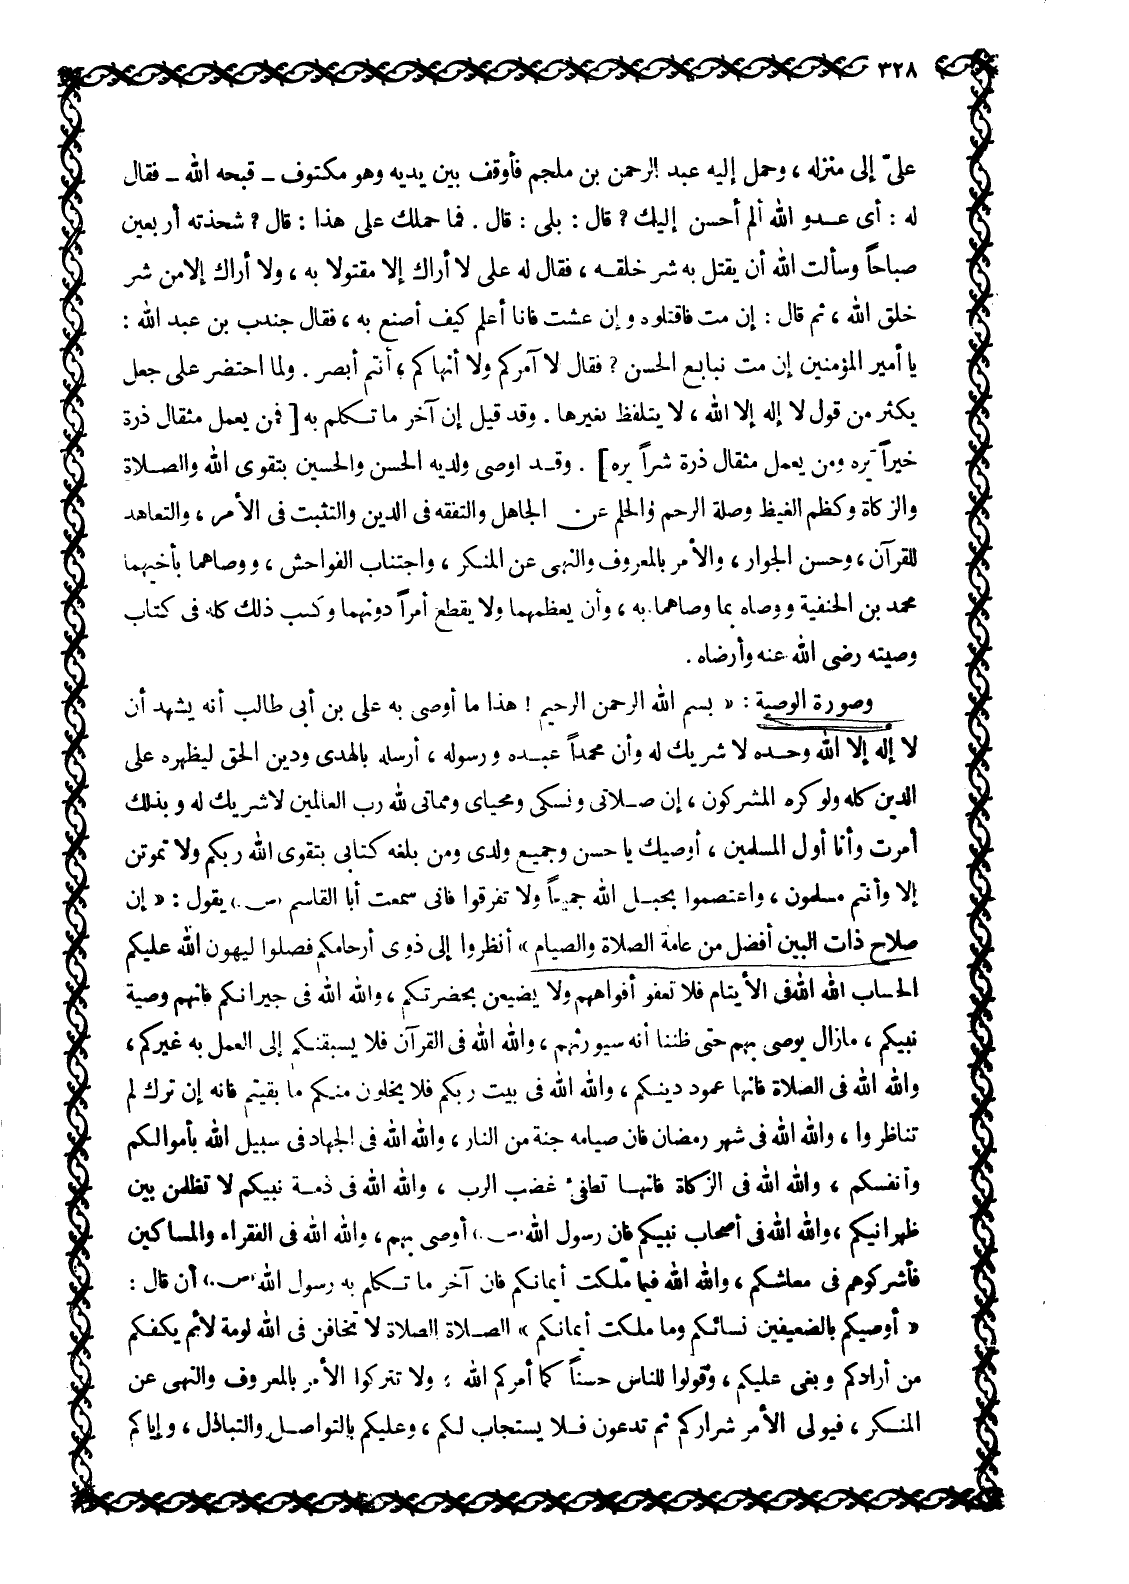 ٣٢٨
علىّ إلى منزله ، وحمل إليه عبد الرحمن بن ملجم فأوقف بين يديه وهو مكتوف ـ قبحه الله ـ فقال
له : أى عـدو الله ألم أحسن إليك ؟ قال : بلى : قال . فما حملك على هذا : قال ؟ شحذته أربعين
صباحاً وسألت الله أن يقتل به شر خلقـه ، فقال له على لا أراك إلا مقتولا به ، ولا أراك إلا من شر
خلق الله ، ثم قال : إن مت فاقتلوه وإن عشت فانا أعلم كيف أصنع به ، فقال جندب بن عبد الله :
يا أمير المؤمنين إن مت نبايع الحسن ؟ فقال لا آمركم ولا أنهاكم ، أنتم أبصر . ولما احتضر على جعل
يكثر من قول لا إله إلا الله ، لا يتلفظ بغيرها . وقد قيل إن آخر ما تـكلم به [ فمن يعمل مثقال ذرة
خيراً يره ومن يعمل مثقال ذرة شراً يره ] . وقـد اوصى ولديه الحسن والحسين بتقوى الله والصـلاة
والزكاة وكظم الغيظ وصلة الرحم والحلم عن الجاهل والتفقه فى الدين والتثبت فى الأمر ، والتعاهد
للقرآن ، وحسن الجوار ، والأمر بالمعروف والنهى عن المنكر ، واجتناب الفواحش ، ووصاهما بأخيهما
محمد بن الحنفية ووصاه بما وصاهما به ، وأن يعظمهما ولا يقطع أمراً دونهما وكتب ذلك كله فى كتاب
وصيته رضى الله عنه وأرضاه .
وصورة الوصية : « بسم الله الرحمن الرحيم ! هذا ما أوصى به على بن أبى طالب أنه يشهد أن
لا إله إلا الله وحـده لا شريك له وأن محمداً عبـده ورسوله ، أرسله بالهدى ودين الحق ليظهره على
الدين كله ولو كره المشركون ، إن صـلاتى ونسكى ومحياى ومماتى لله رب العالمين لا شريك له وبذلك
أمرت وأنا أول المسلمين ، أوصيك يا حسن وجميع ولدى ومن بلغه كتابى بتقوى الله ربكم ولا تموتن
إلا وأنتم مسلمون ، واعتصموا بحبـل الله جميعاً ولا تفرقوا فانى سمعت أبا القاسم (ص) يقول : « إن
صلاح ذات البين أفضل من عامة الصلاة والصيام » أنظروا إلى ذوى أرحامكم فصلوا ليهون الله عليكم
الحساب الله الله فى الأيتام فلا تعفو أفواههم ولا يضيعن بحضرتكم ، والله الله فى جيرانكم فانهم وصية
نبيكم ، مازال يوصى بهم حتى ظننا أنه سيورثهم ، والله الله فى القرآن فلا يسبقنكم إلى العمل به غيركم ،
والله الله فى الصلاة فانها عمود دينكم ، والله الله فى بيت ربكم فلا يخلون منكم ما بقيتم فانه إن ترك لم
تناظروا ، والله الله فى شهر رمضان فان صيامه جنة من النار ، والله الله فى الجهاد فى سبيل الله بأموالكم
وأنفسكم ، والله الله فى الزكاة فانهـا تطفئ غضب الرب ، والله الله فى ذمة نبيكم لا تظلمن بين
ظهرانيكم ، والله الله فى أصحاب نبيكم فان رسول الله (ص) أوصى بهم ، والله الله فى الفقراء والمساكين
فأشركوهم فى معاشكم ، والله الله فيما ملكت أيمانكم فان آخر ما تـكلم به رسول الله (ص) أن قال :
« أوصيكم بالضعيفين نسائكم وما ملكت أيمانكم » الصـلاة الصلاة لا تخافن فى الله لومة لائم يكفكم
من أرادكم وبغى عليكم ، وقولوا للناس حسناً كما أمركم الله ، ولا تتركوا الأمر بالمعروف والنهى عن
المنـكر ، فيولى الأمر شراركم ثم تدعون فـلا يستجاب لكم ، وعليكم بالتواصـل والتباذل ، وإياكم